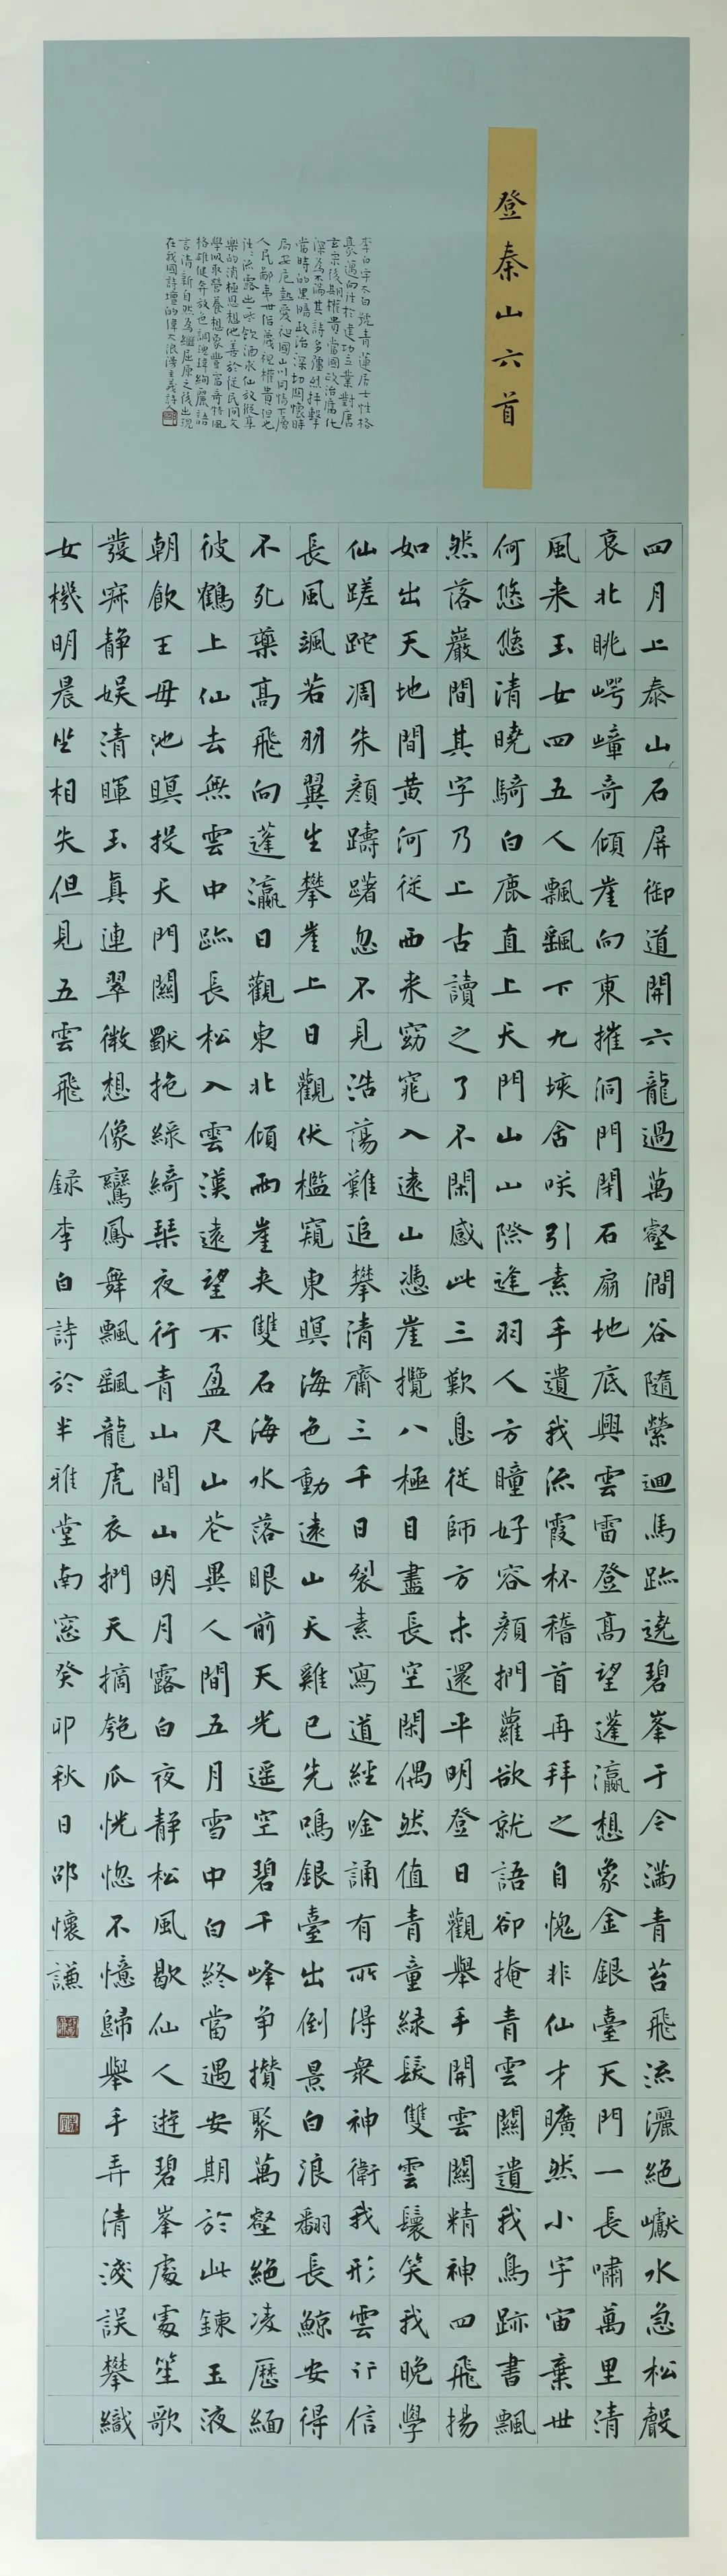 登泰山六首
李白字太白號青蓮居士性格
豪邁向往於建功立業對唐
玄宗後期權貴當國政治腐化
深為不滿其詩多強烈抨擊
當時的黑暗政治深切關懷時
局安危熱愛祖國山川同情下層
人民鄙夷世俗蔑視權貴但也
往往流露出一些飲酒求仙放縱享
樂的消極思想他善於從民間文
學吸取營養想象豐富奇特風
格雄健奔放色調瑰瑋絢麗語
言清新自然為繼屈原之後出現
在我國詩壇的偉大浪漫主義詩人
四月上泰山石屏御道開六龍過萬壑澗谷隨縈迴馬跡遶碧峯于今滿青苔飛流灑絕巘水急松聲
哀北眺崿嶂奇傾崖向東摧洞門閉石扇地底興雲雷登高望蓬瀛想象金銀臺天門一長嘯萬里清
風来玉女四五人飄颻下九垓含咲引素手遺我流霞杯稽首再拜之自愧非仙才曠然小宇宙棄世
何悠悠清曉騎白鹿直上天門山山際逢羽人方瞳好容顏捫蘿欲就語卻掩青雲關遺我鳥跡書飄
然落巖間其字乃上古讀之了不閑感此三歎息從師方未還平明登日觀舉手開雲關精神四飛揚
如出天地間黄河從西来窈窕入遠山憑崖攬八極目盡長空閑偶然值青童緑髮雙雲鬟笑我晚學
仙蹉跎凋朱顏躊躇忽不見浩蕩難追攀清齋三千日裂素寫道經唫誦有所得衆神衛我形雲行信
長風颯若羽翼生攀崖上日觀伏檻窺東暝海色動遠山天雞已先鳴銀臺出倒景白浪翻長鯨安得
不死藥高飛向蓬瀛日觀東北傾兩崖夾雙石海水落眼前天光遥空碧千峰争攢聚萬壑絕凌歷緬
彼鶴上仙去無雲中跡長松入雲漢遠望不盈尺山花異人間五月雪中白終當遇安期於此鍊玉液
朝飲王母池瞑投天門關獨抱緑綺琴夜行青山間山明月露白夜靜松風歇仙人遊碧峯處處笙歌
發寐静娱清暉玉真連翠微想像鸞鳳舞飄颻龍虎衣捫天摘匏瓜恍惚不憶歸舉手弄清淺誤攀織
女機明晨坐相失但見五雲飛 録李白詩於半雅堂南窓癸卯秋日邵懷謙